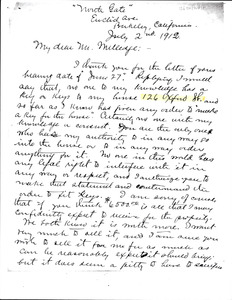 "North Gate"
Euclid Ave.
Berkeley, California.
July 2nd 1912.
My dear Mr. Milledge:
I thank you for the letter of yours
bearing date of June 27". Replying I must
say that, no one to my knowledge has a
key or keys to my house 126 Oxford St. and
so far as I know has given any order to "make
a key for the house" Certainly no one with my
knowledge or consent. You are the only one
who has any authority to in any way go
into the house or to in any way order
anything for it. No one in this world has
any legal right to interfere with it in
any way or respect, and I authorize you to
make that statement and countermand the
order to fit keys. I am sorry, of course
that if you think $6500.00 is all that I may
confidently expect to receive for the property.
We both know it is worth more. I want
very much to sell it, and I am sure you
wish to sell it for me for as much as
can be reasonably expected
but it does seem a pity to have to sacrifice